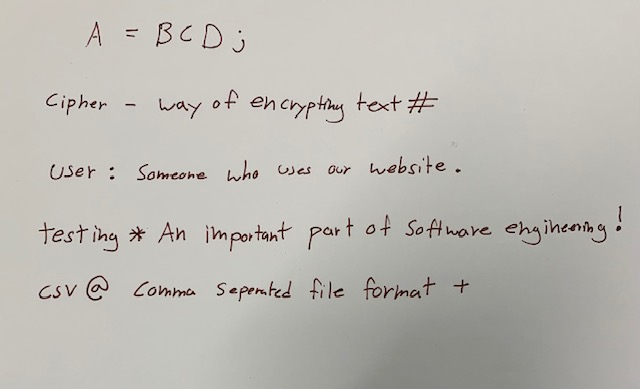 A = BCD;
Cipher - way of encrypting text #
User : Someone who uses our website.
testing * An important part of Software engineering!
CSV @ Comma Seperated file format +